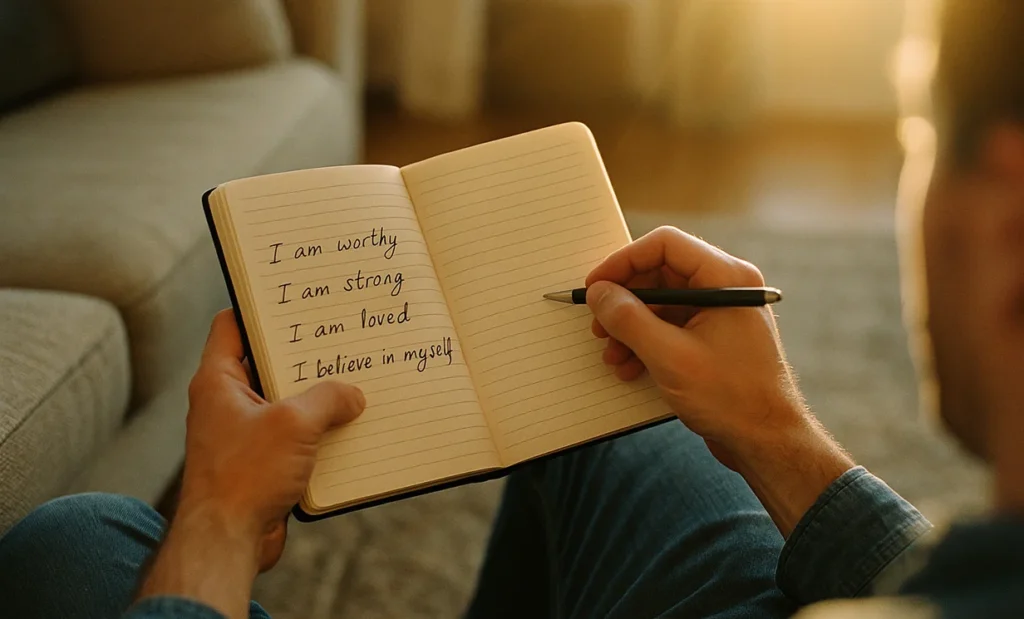 I am worthy
I am strong
I am loved
I believe in myself